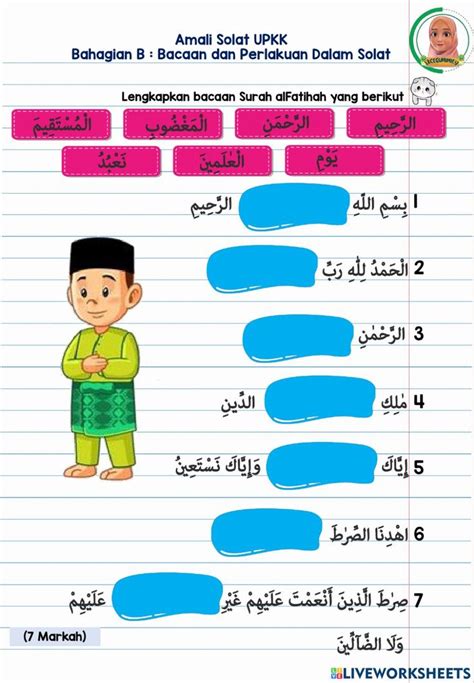 Amali Solat UPKK
Bahagian B : Bacaan dan Perlakuan Dalam Solat
Lengkapkan bacaan Surah alFatihah yang berikut
الرَّحِيمِ الرَّحْمَنِ الْمَغْضُوبِ الْمُسْتَقِيمَ
يَوْمِ الْعٰلَمِينَ نَعْبُدُ
1 بِسْمِ اللّٰهِ الرَّحِيمِ
2 الْحَمْدُ لِلّٰهِ رَبِّ
3 الرَّحْمٰنِ
4 مٰلِكِ الدِّينِ
5 إِيَّاكَ وَإِيَّاكَ نَسْتَعِينُ
6 اهْدِنَا الصِّرٰطَ
7 صِرٰطَ الَّذِينَ أَنْعَمْتَ عَلَيْهِمْ غَيْرِ عَلَيْهِمْ
وَلَا الضَّآلِّينَ
(7 Markah)
LIVEWORKSHEETS